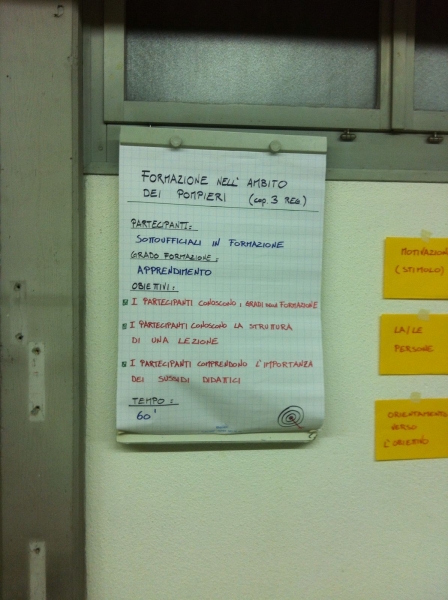 FORMAZIONE NELL' AMBITO
DEI POMPIERI (cap. 3 REG.)
PARTECIPANTI:
SOTTOUFFICIALI IN FORMAZIONE
GRADO FORMAZIONE:
APPRENDIMENTO
OBIETTIVI:
I PARTECIPANTI CONOSCONO I GRADI DELLA FORMAZIONE
I PARTECIPANTI CONOSCONO LA STRUTTURA
DI UNA LEZIONE
I PARTECIPANTI COMPRENDONO L'IMPORTANZA
DEI SUSSIDI DIDATTICI
TEMPO:
60'
MOTIVAZIONE
(STIMOLO)
LA/LE
PERSONE
ORIENTAMENTO
VERSO
L'OBIETTIVO